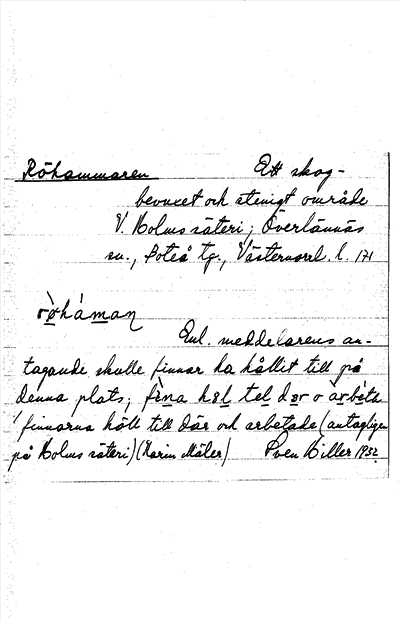 Röhammaren Ett skog-
bevuxet och stenigt område
V. Holms säteri, Överlännäs
sn., Sollefteå tg., Västernorrl. l. 171
rø̀hàmaṉ
Enl. meddelarens an-
tagande skulle finnar ha hållit till på
denna plats; 
finnarna höll till där och arbetade (antagligen
på Holms säteri) (Karin Mäler) Sven Hiller 1932.